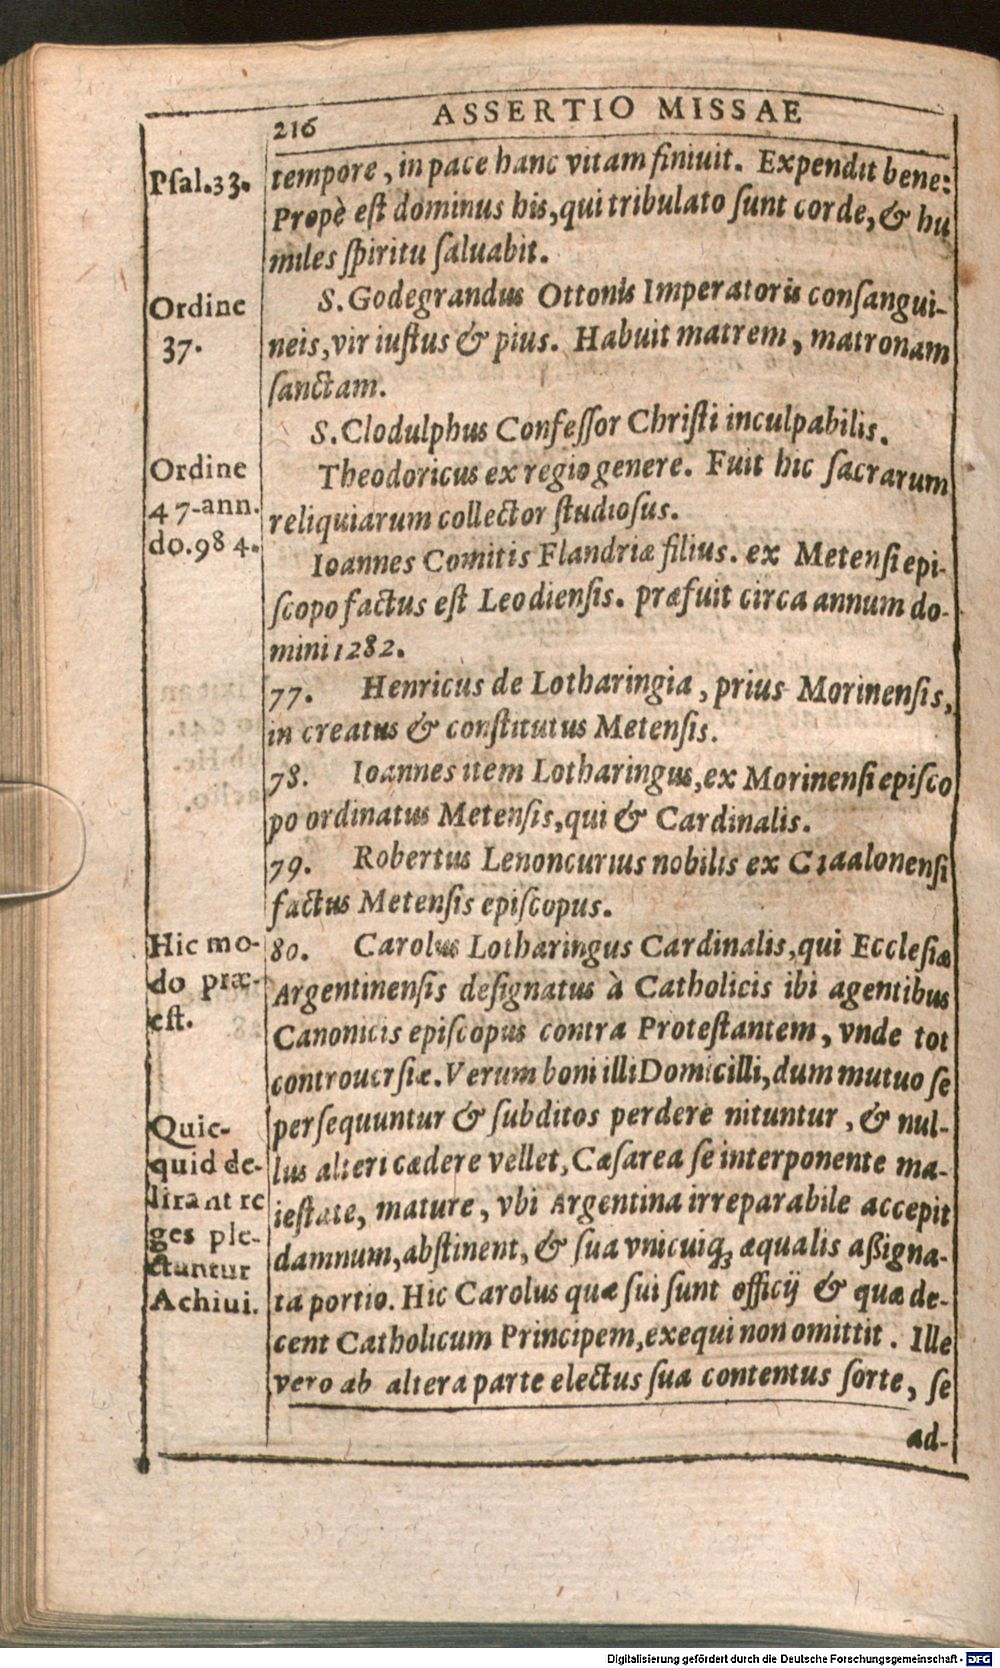 216 ASSERTIO MISSAE
Psal.33.
tempore, in pace hanc vitam finiuit. Expendit bene:
Propè est dominus his, qui tribulato sunt corde, & hu
miles spiritu saluabit.
Ordine
37.
S. Godegrandus Ottonis Imperatoris consangui-
neis, vir iustus & pius. Habuit matrem, matronam
sanctam.
S. Clodulphus Confessor Christi inculpabilis.
Ordine
47-ann.
do.984.
Theodoricus ex regio genere. Fuit hic sacrarum
reliquiarum collector studiosus.
Ioannes Comitis Flandriæ filius. ex Metensi epi-
scopo factus est Leodiensis. præfuit circa annum do-
mini 1282.
77. Henricus de Lotharingia, prius Morinensis,
in creatus & constitutus Metensis.
78. Ioannes item Lotharingus, ex Morinensi episco
po ordinatus Metensis, qui & Cardinalis.
79. Robertus Lenoncurius nobilis ex C1aalonensi
factus Metensis episcopus.
Hic mo-
do præ-
est.
80. Carolus Lotharingus Cardinalis, qui Ecclesiæ
Argentinensis designatus à Catholicis ibi agentibus
Canonicis episcopus contra Protestantem, vnde tot
controuersiæ. Verum boni illi Domicilli, dum mutuo se
Quic-
quid de-
lirant re
ges ple-
ctuntur
Achiui.
persequuntur & subditos perdere nituntur, & nul-
lus alteri cædere vellet, Cæsarea se interponente ma-
iestate, mature, vbi Argentina irreparabile accepit
damnum, abstinent, & sua vnicuiq; æqualis aßigna-
ta portio. Hic Carolus quæ sui sunt officij & quæ de-
cent Catholicum Principem, exequi non omittit. Ille
vero ab altera parte electus sua contentus sorte, se
ad-
Digitalisierung gefördert durch die Deutsche Forschungsgemeinschaft - DFG